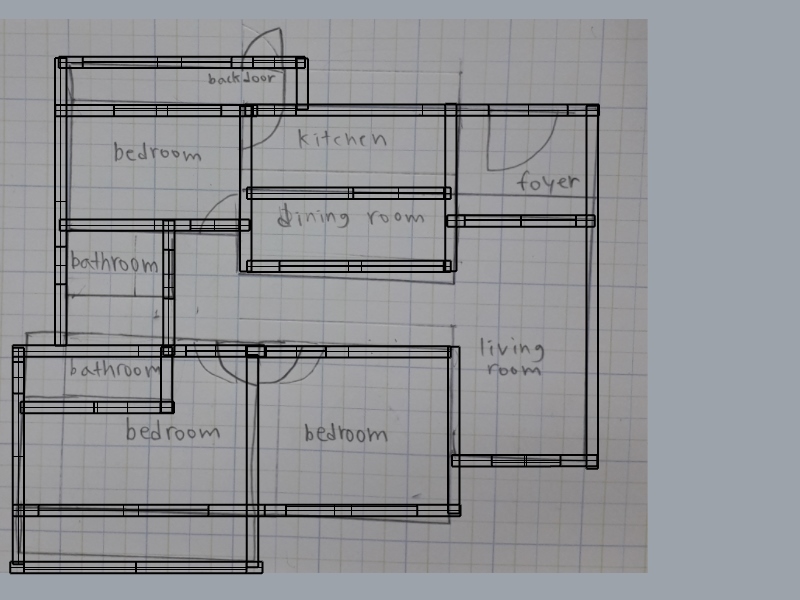 backdoor
kitchen
bedroom
foyer
dining room
bathroom
living
room
bathroom
bedroom
bedroom